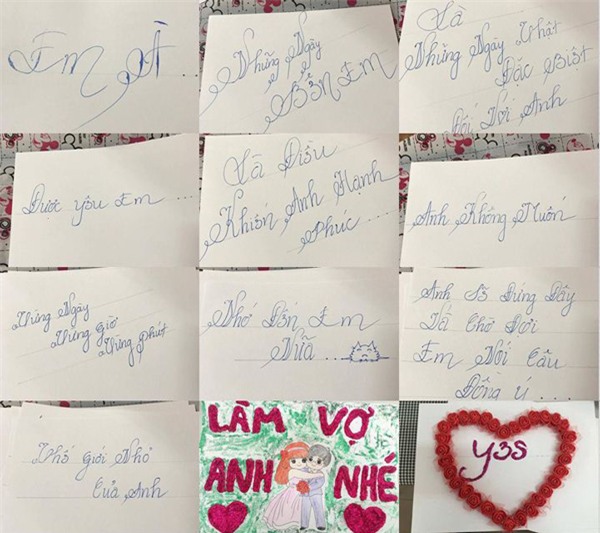 Em À
...
Những Ngày
Bên Em
Là
Những Ngày Thật
Đặc Biệt
Đối Với Anh
Được yêu Em ...
Là Điều
Khiến Anh Hạnh
Phúc ...
Anh Không Muốn
...
Từng Ngày
Từng giờ
Từng phút
Nhớ Đến Em
Nữa ...
Anh Sẽ Đứng Đây
Và Chờ Đợi
Em Nói Câu
Đồng Ý ...
Thế giới Nhỏ
Của Anh
LÀM VỢ
ANH NHÉ
yes